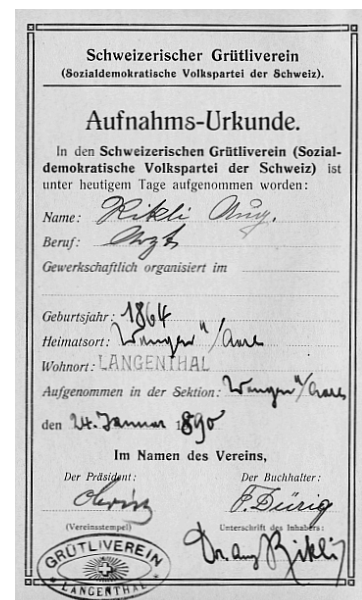 Schweizerischer Grütliverein
(Sozialdemokratische Volkspartei der Schweiz).
Aufnahms-Urkunde.
In den Schweizerischen Grütliverein (Sozial-
demokratische Volkspartei der Schweiz) ist
unter heutigem Tage aufgenommen worden:
Name: Rikli Aug.
Beruf: Arzt
Gewerkschaftlich organisiert im
Geburtsjahr: 1864
Heimatsort: Wangen a/Aare
Wohnort: LANGENTHAL
Aufgenommen in der Sektion: Wangen a/Aare
den 24. Januar 1890
Im Namen des Vereins,
Der Präsident: Der Buchhalter:
F. Dürig
(Vereinsstempel) Unterschrift des Inhabers:
Dr. Aug Rikli
GRÜTLIVEREIN
LANGENTHAL